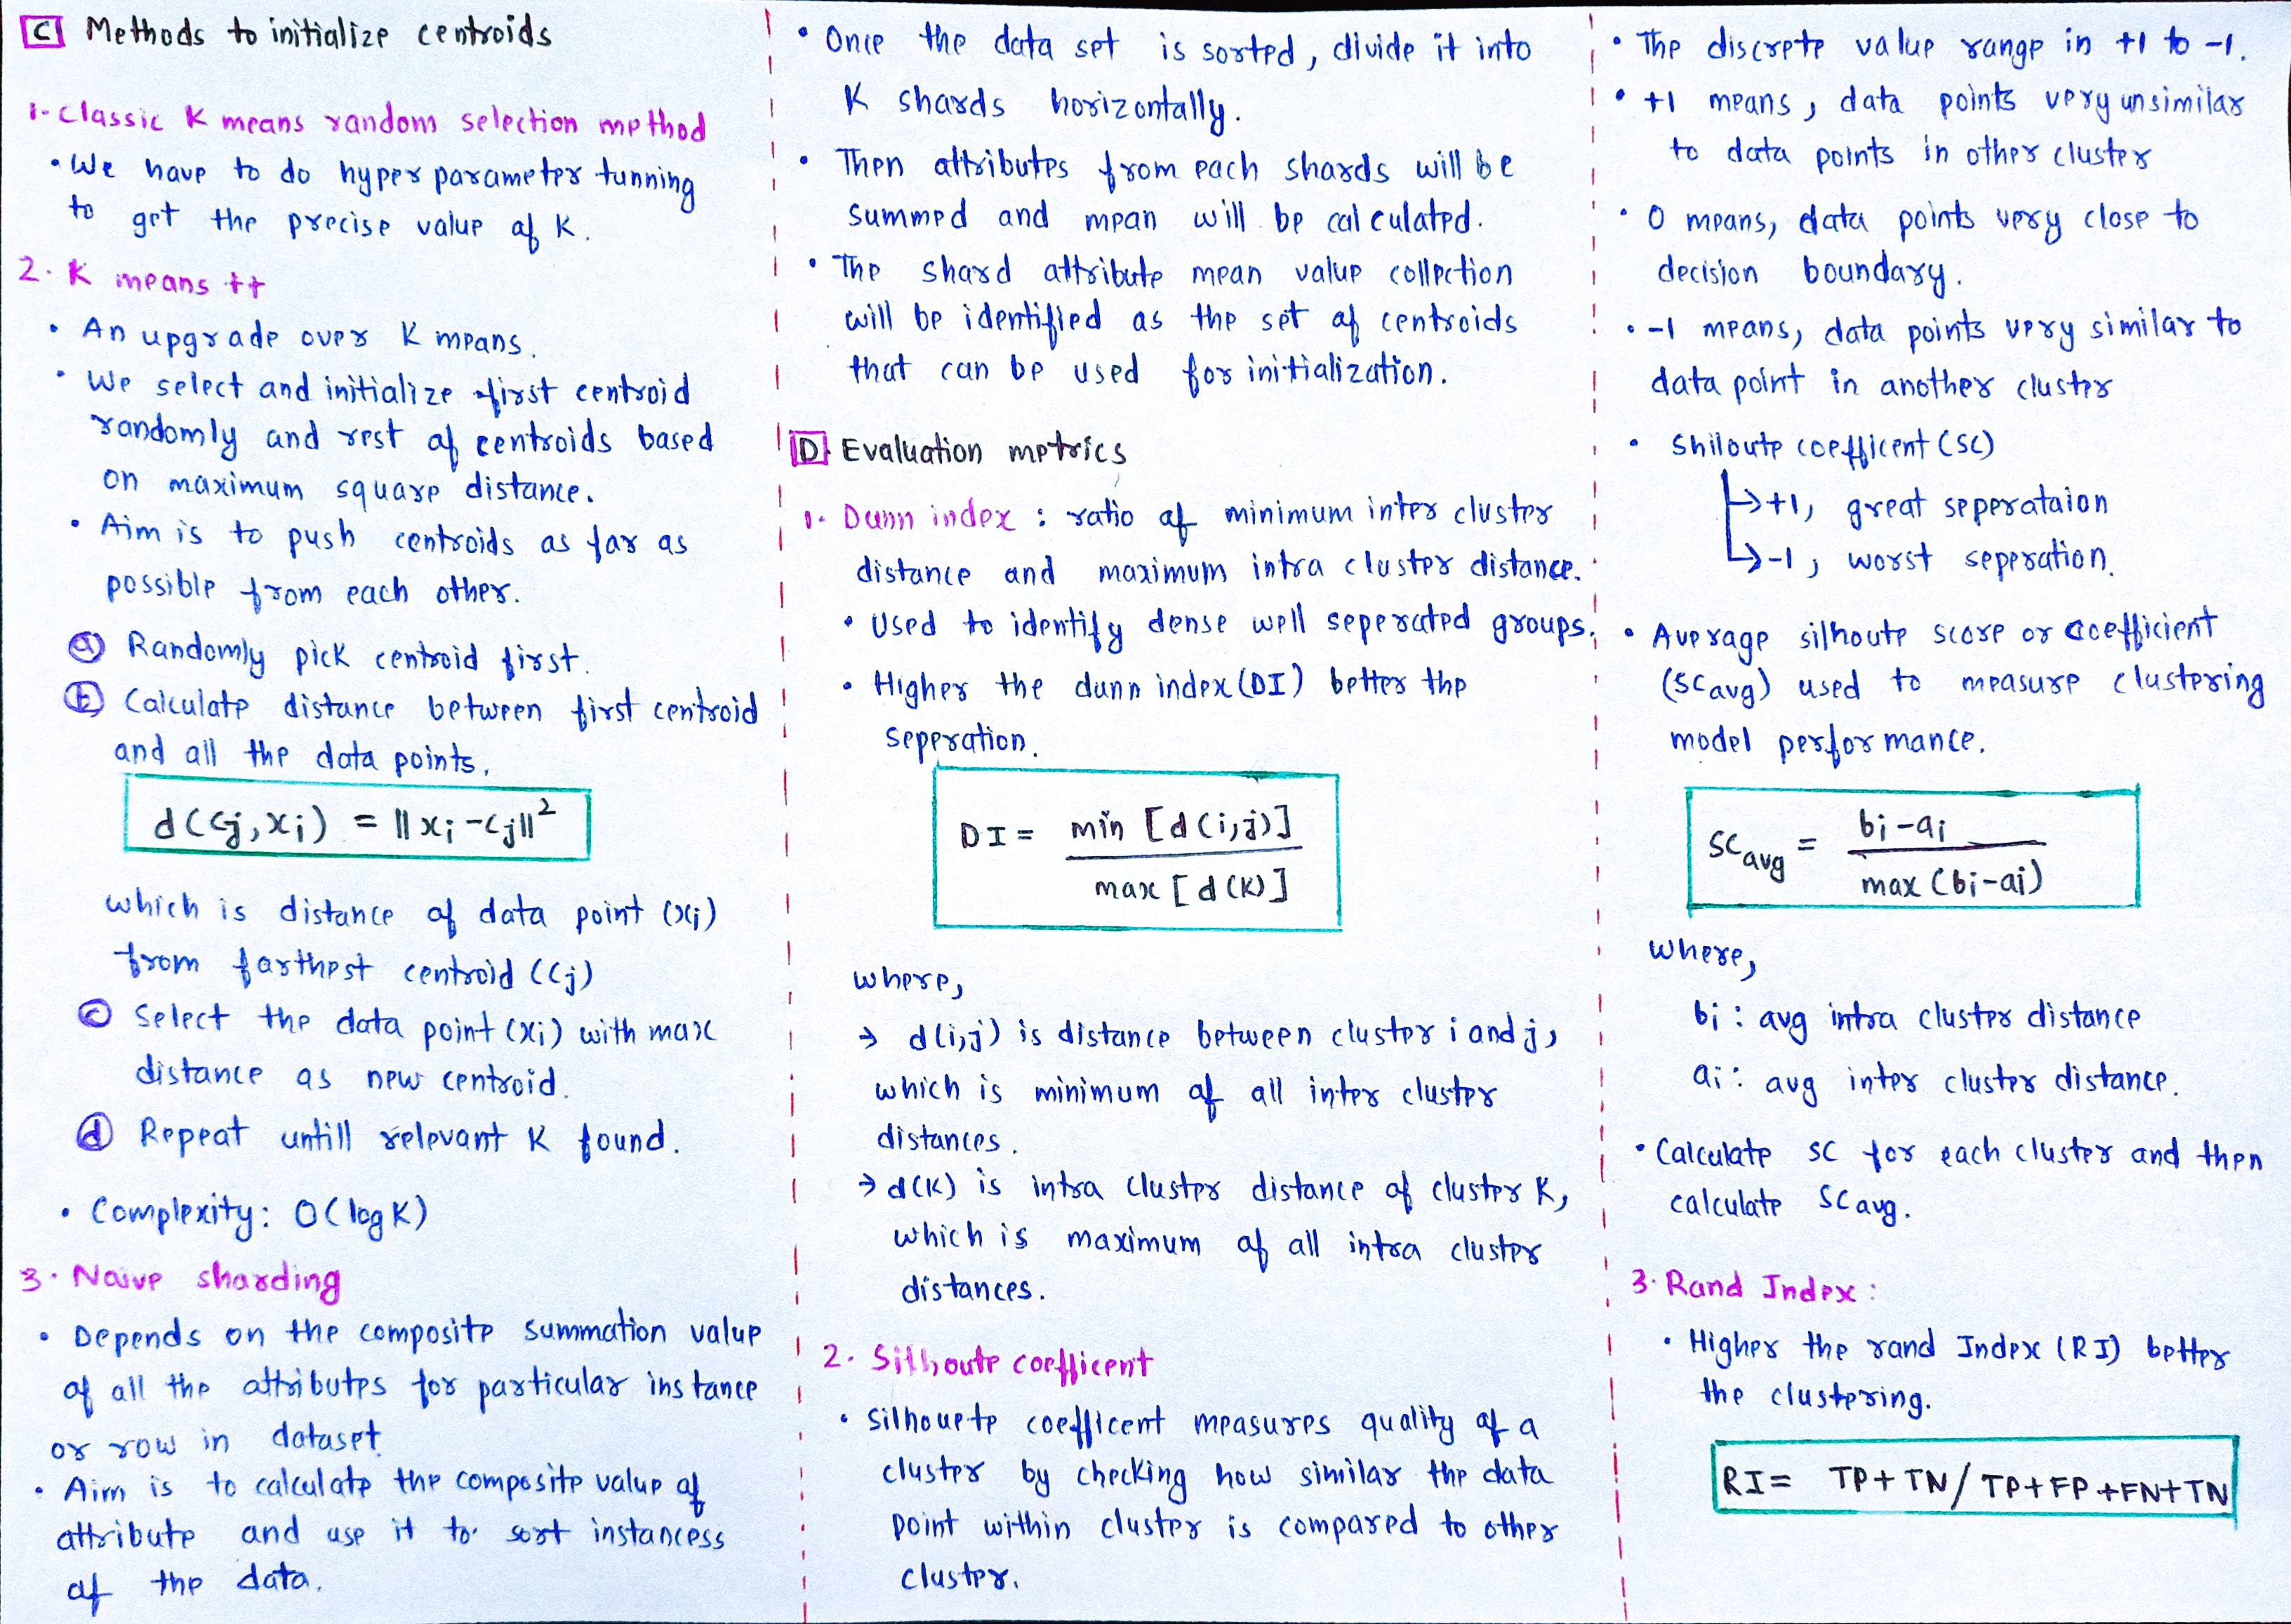 C Methods to initialize centroids
1. Classic K means random selection method
• We have to do hyper parameter tunning
to get the precise value of K.
2. K means ++
• An upgrade over K means.
• We select and initialize first centroid
randomly and rest of centroids based
on maximum square distance.
• Aim is to push centroids as far as
possible from each other.
a Randomly pick centroid first.
b Calculate distance between first centroid
and all the data points.
d(Cj, xi) = ||xi - Cj||²
which is distance of data point (xi)
from farthest centroid (Cj)
c Select the data point (xi) with max
distance as new centroid.
d Repeat untill relevant K found.
• Complexity: O(log K)
3. Naive sharding
• Depends on the composite summation value
of all the attributes for particular instance
or row in dataset
• Aim is to calculate the composite value of
attribute and use it to sort instancess
of the data.
• Once the data set is sorted, divide it into
K shards horizontally.
• Then attributes from each shards will be
summed and mean will be calculated.
• The shard attribute mean value collection
will be identified as the set of centroids
that can be used for initialization.
D. Evaluation metrics
1. Dunn index : ratio of minimum inter cluster
distance and maximum intra cluster distance.
• Used to identify dense well seperated groups.
• Higher the dunn index (DI) better the
seperation.
DI = min [d(i,j)] / max [d(K)]
where,
→ d(i,j) is distance between cluster i and j,
which is minimum of all inter cluster
distances.
→ d(K) is intra cluster distance of cluster K,
which is maximum of all intra cluster
distances.
2. Silhoute coefficent
• Silhouete coefficent measures quality of a
cluster by checking how similar the data
point within cluster is compared to other
cluster.
• The discrete value range in +1 to -1.
• +1 means, data points very unsimilar
to data points in other cluster
• 0 means, data points very close to
decision boundary.
• -1 means, data points very similar to
data point in another cluster
• Shiloute coefficent (SC)
→ +1, great seperataion
→ -1, worst seperation.
• Average silhoute score or coefficient
(SCavg) used to measure clustering
model performance.
SCavg = bi - ai / max (bi - ai)
where,
bi : avg intra cluster distance
ai : avg inter cluster distance.
• Calculate SC for each cluster and then
calculate SCavg.
3. Rand Index :
• Higher the rand Index (RI) better
the clustering.
RI = TP + TN / TP + FP + FN + TN